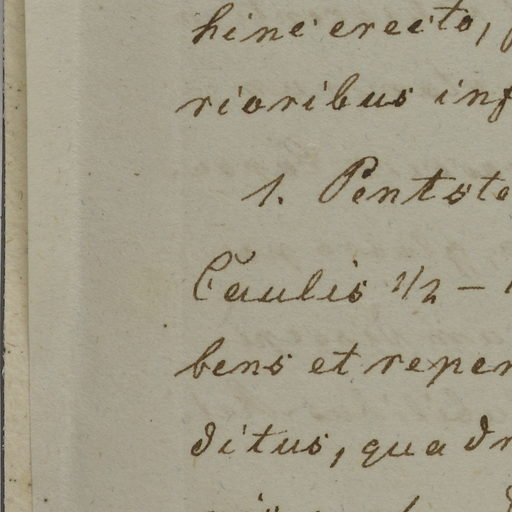 hinc erecto,
rioribus inf
1. Pentste
Caulis 1/2 –
bens et reper
ditus, quadr